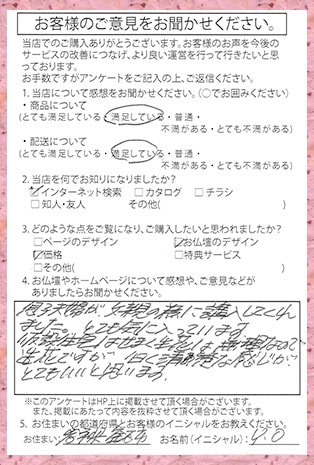 お客様のご意見をお聞かせください。
当店でのご購入ありがとうございます。お客様のお声を今後の
サービスの改善につなげ、より良い運営を行って行きたいと思
っております。
お手数ですがアンケートをご記入の上、ご返信ください。
1. 当店について感想をお聞かせください。(○でお囲みください)
・商品について
(とても満足している・満足している・普通・
不満がある・とても不満がある)
・配送について
(とても満足している・満足している・普通・
不満がある・とても不満がある)
2. 当店を何でお知りになりましたか?
☑インターネット検索 □カタログ □チラシ
□知人・友人 その他( )
3. どのような点をご覧になり、ご購入したいと思われましたか?
□ページのデザイン ☑お仏壇のデザイン
☑価格 □特典サービス
□その他( )
4. お仏壇やホームページについて感想や、ご意見などが
ありましたらお聞かせください。
夫婦が 母親の為に購入してくれ
ました。とても気に入っています。
なので
ですが 白く清潔な感じが
とてもいいと思います。
※このアンケートはHP上に掲載させて頂く場合がございます。
また、掲載にあたって内容を抜粋させて頂く場合がございます。
5. お住まいの都道府県とお客様のイニシャルをお教えください。
お住まい お名前(イニシャル): Y.O